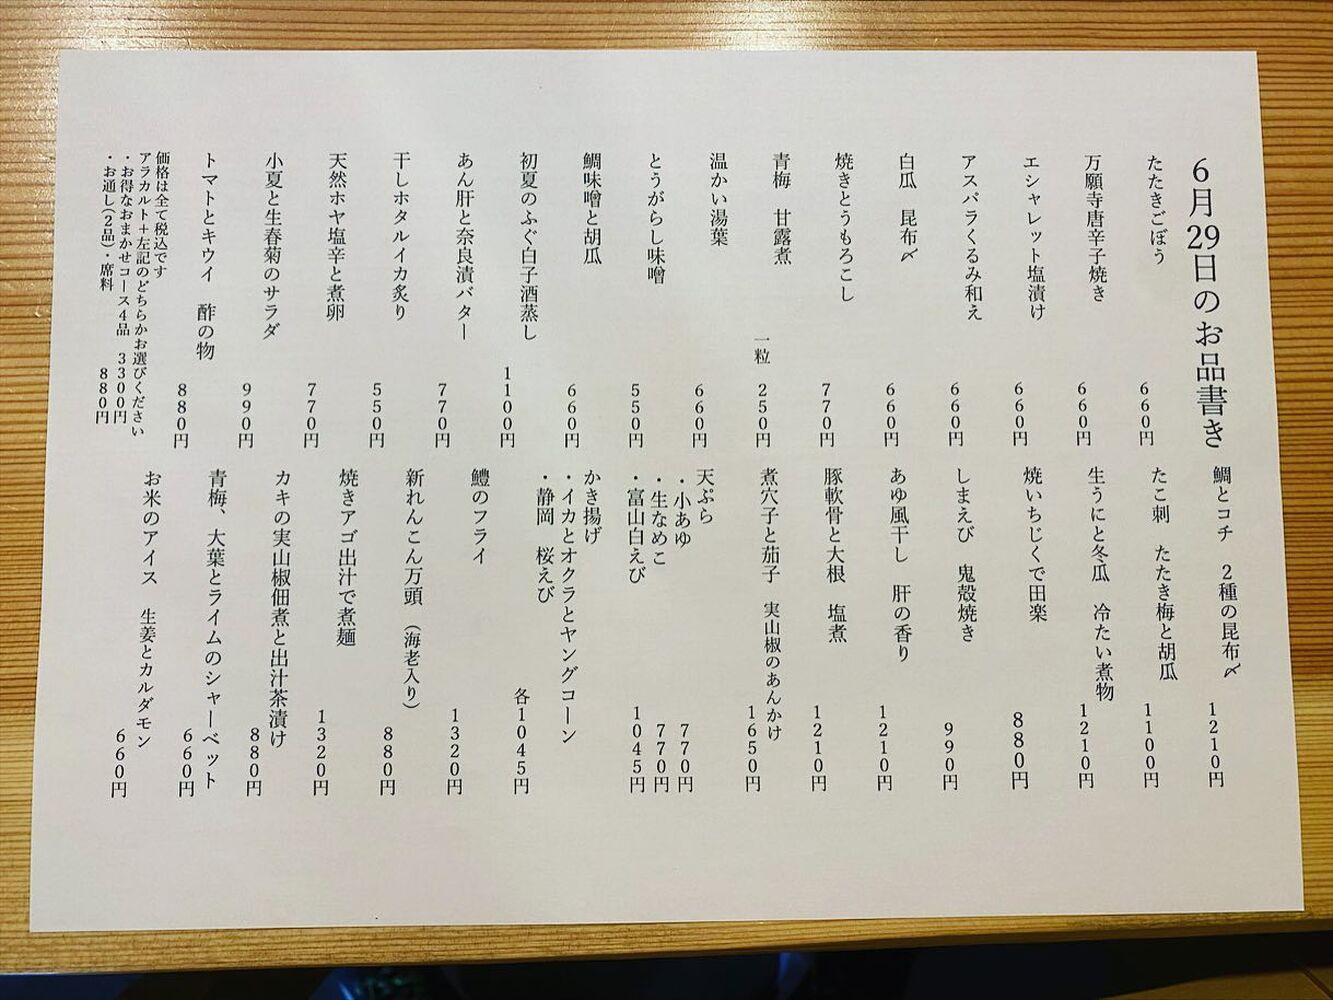 6月29日のお品書き
たたきごぼう 660円
万願寺唐辛子焼き 660円
エシャレット塩漬け 660円
アスパラくるみ和え 660円
白瓜 昆布〆 660円
焼きとうもろこし 770円
青梅 甘露煮 一粒 250円
温かい湯葉 660円
とうがらし味噌 550円
鯛味噌と胡瓜 660円
初夏のふぐ白子酒蒸し 1100円
あん肝と奈良漬バター 770円
干しホタルイカ炙り 550円
天然ホヤ塩辛と煮卵 770円
小夏と生春菊のサラダ 990円
トマトとキウイ 酢の物 880円
価格は全て税込です
アラカルト+左記のどちらかお選びください
・お得なおまかせコース4品 3300円
・お通し(2品)・席料 880円
鯛とコチ 2種の昆布〆 1210円
たこ刺 たたき梅と胡瓜 1100円
生うにと冬瓜 冷たい煮物 1210円
焼いちじくで田楽 880円
しまえび 鬼殻焼き 990円
あゆ風干し 肝の香り 1210円
豚軟骨と大根 塩煮 1210円
煮穴子と茄子 実山椒のあんかけ 1650円
天ぷら
・小あゆ 770円
・生なめこ 770円
・富山白えび 1045円
かき揚げ
・イカとオクラとヤングコーン
・静岡 桜えび 各1045円
鱧のフライ 1320円
新れんこん万頭(海老入り) 880円
焼きアゴ出汁で煮麺 1320円
カキの実山椒佃煮と出汁茶漬け 880円
青梅、大葉とライムのシャーベット 660円
お米のアイス 生姜とカルダモン 660円